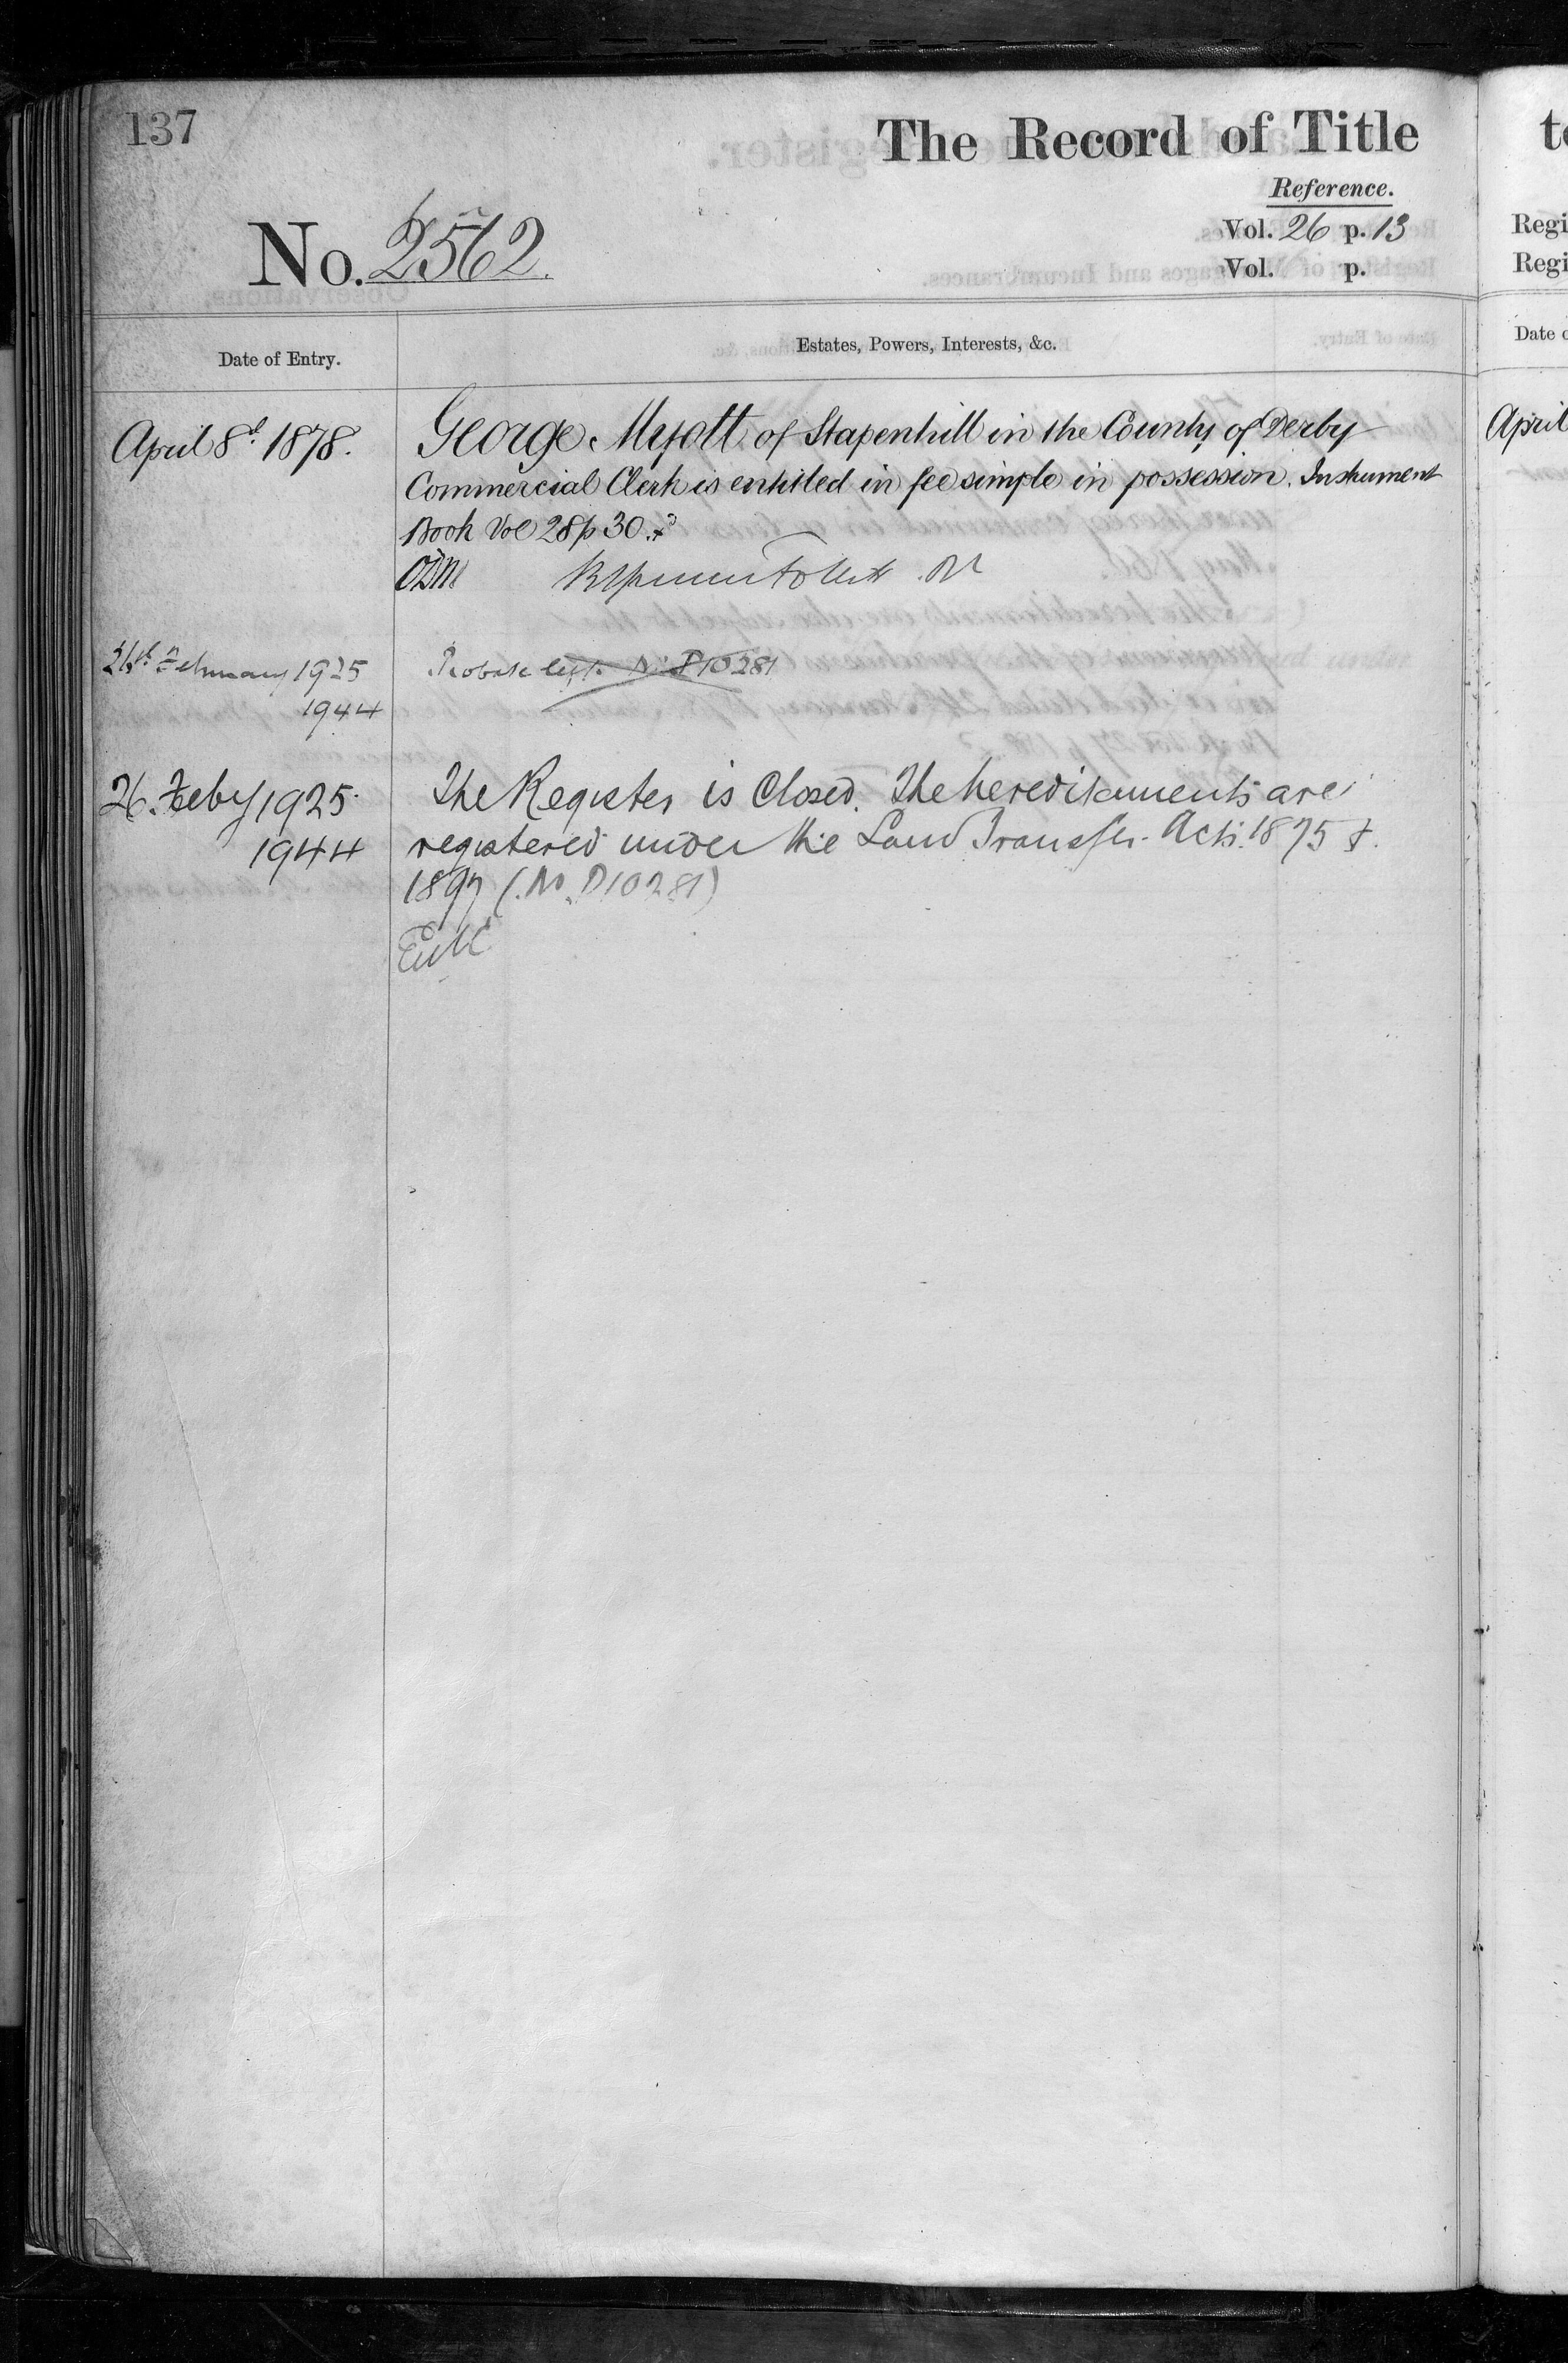 137
The Record of Title
Reference.
No. 2562.
Vol. 26 p. 13
Vol. p.
Date of Entry.
Estates, Powers, Interests, &c.
April 8th 1878.
George Myott of Stapenhill in the County of Derby
Commercial Clerk is entitled in fee simple in possession. Instrument
Book Vol 28 p 30.
February 1925
1944
Probate No P10281
26. Feby 1925.
1944
The Register is Closed. The hereditaments are
registered under the Land Transfer Acts. 1875 &
1897 (No. P10281)
Regi
Regi
Date
April